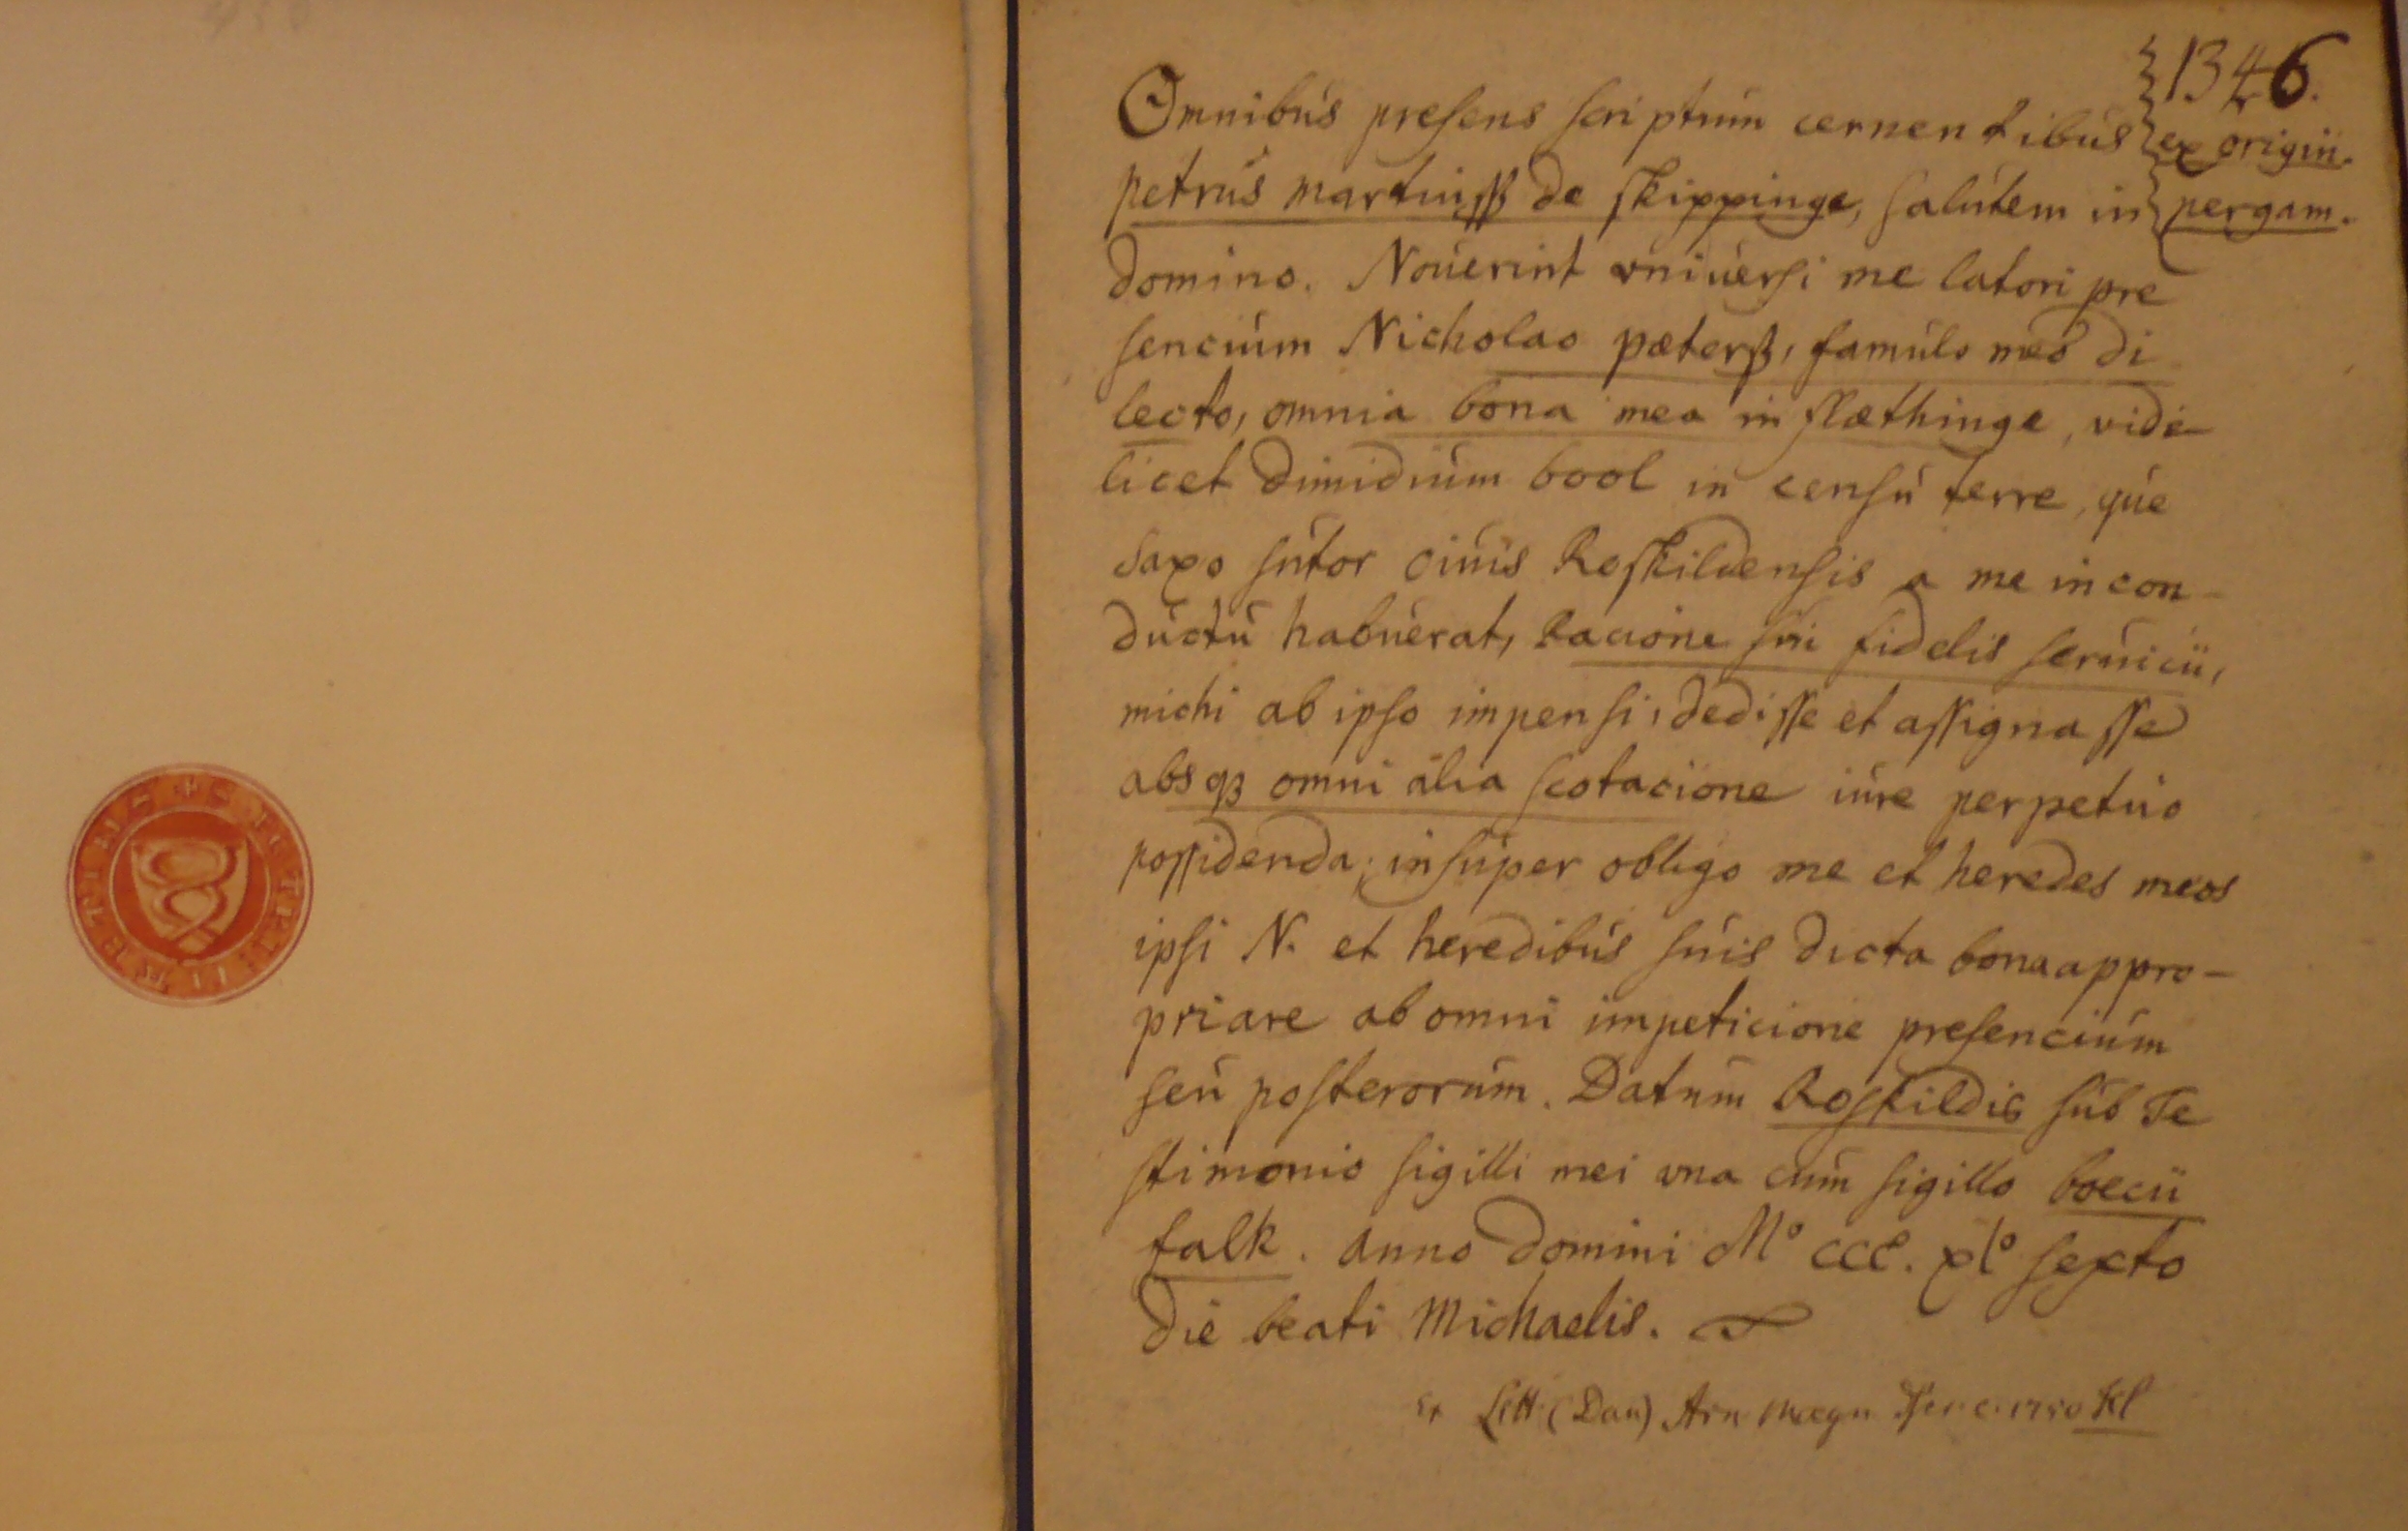 1346.
ex origin.
pergam.
Omnibus presens scriptum cernentibus
petrus martinss de skippinge, salutem in
domino. Nouerint vniuersi me latori pre
sencium Nicholao pæterß, famulo meo di
lecto, omnia bona mea in slæthinge, vide-
licet dimidium bool in censu terre, que
Saxo sutor ciuis Roskildensis a me in con-
ductu habuerat, Racione sui fidelis seruicii,
michi ab ipso impensi, dedisse et assignasse
absqꝫ omni alia scotacione iure perpetuo
possidenda; insuper obligo me et heredes meos
ipsi N. et heredibus suis dicta bona appro-
priare ab omni impeticione presencium
seu posterorum. Datum Roskildis sub Te
stimonio sigilli mei vna cum sigillo boecii
falk. Anno Domini Mº ccc. xlº sexto
Die beati Michaelis.
(Dan) Arn Magn